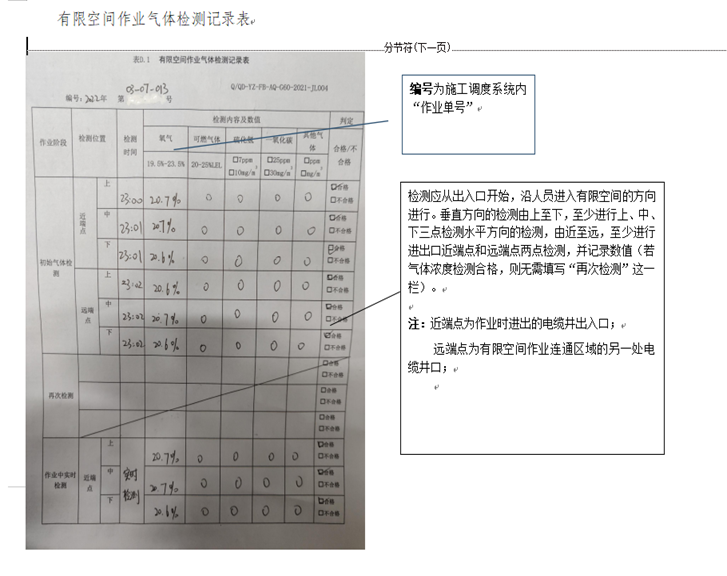 有限空间作业气体检测记录表
分节符(下一页)
表D.1 有限空间作业气体检测记录表
Q/QD-YZ-FB-AQ-G60-2021-JL004
编号：2022年 第 03-07-013 号
作业阶段 检测位置 检测时间 检测内容及数值 判定
氧气 可燃气体 硫化氢 一氧化碳 其他气体 合格/不合格
19.5%-23.5% 20-25%LEL □7ppm □10mg/m³ □25ppm □30mg/m³ □ppm □mg/m³
初始气体检测
近端点
上 23:00 20.7% 0 0 0 0 合格 □不合格
中 23:01 20.7% 0 0 0 0 合格 □不合格
下 23:01 20.6% 0 0 0 0 合格 □不合格
远端点
上 23:02 20.6% 0 0 0 0 合格 □不合格
中 23:02 20.7% 0 0 0 0 合格 □不合格
下 23:02 20.6% 0 0 0 0 合格 □不合格
再次检测
□合格 □不合格
□合格 □不合格
□合格 □不合格
作业中实时检测
近端点
实时检测
上 20.7% 0 0 0 0 合格 □不合格
中 20.7% 0 0 0 0 合格 □不合格
下 20.6% 0 0 0 0 合格 □不合格
编号为施工调度系统内
“作业单号”
检测应从出入口开始，沿人员进入有限空间的方向
进行。垂直方向的检测由上至下，至少进行上、中、
下三点检测水平方向的检测，由近至远，至少进行
进出口近端点和远端点两点检测，并记录数值（若
气体浓度检测合格，则无需填写“再次检测”这一
栏）。
注：近端点为作业时进出的电缆井出入口；
远端点为有限空间作业连通区域的另一处电
缆井口；